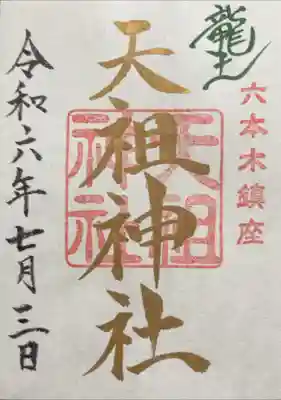 龍土
六本木鎮座
天祖神社
天祖
神社
令和六年七月三日